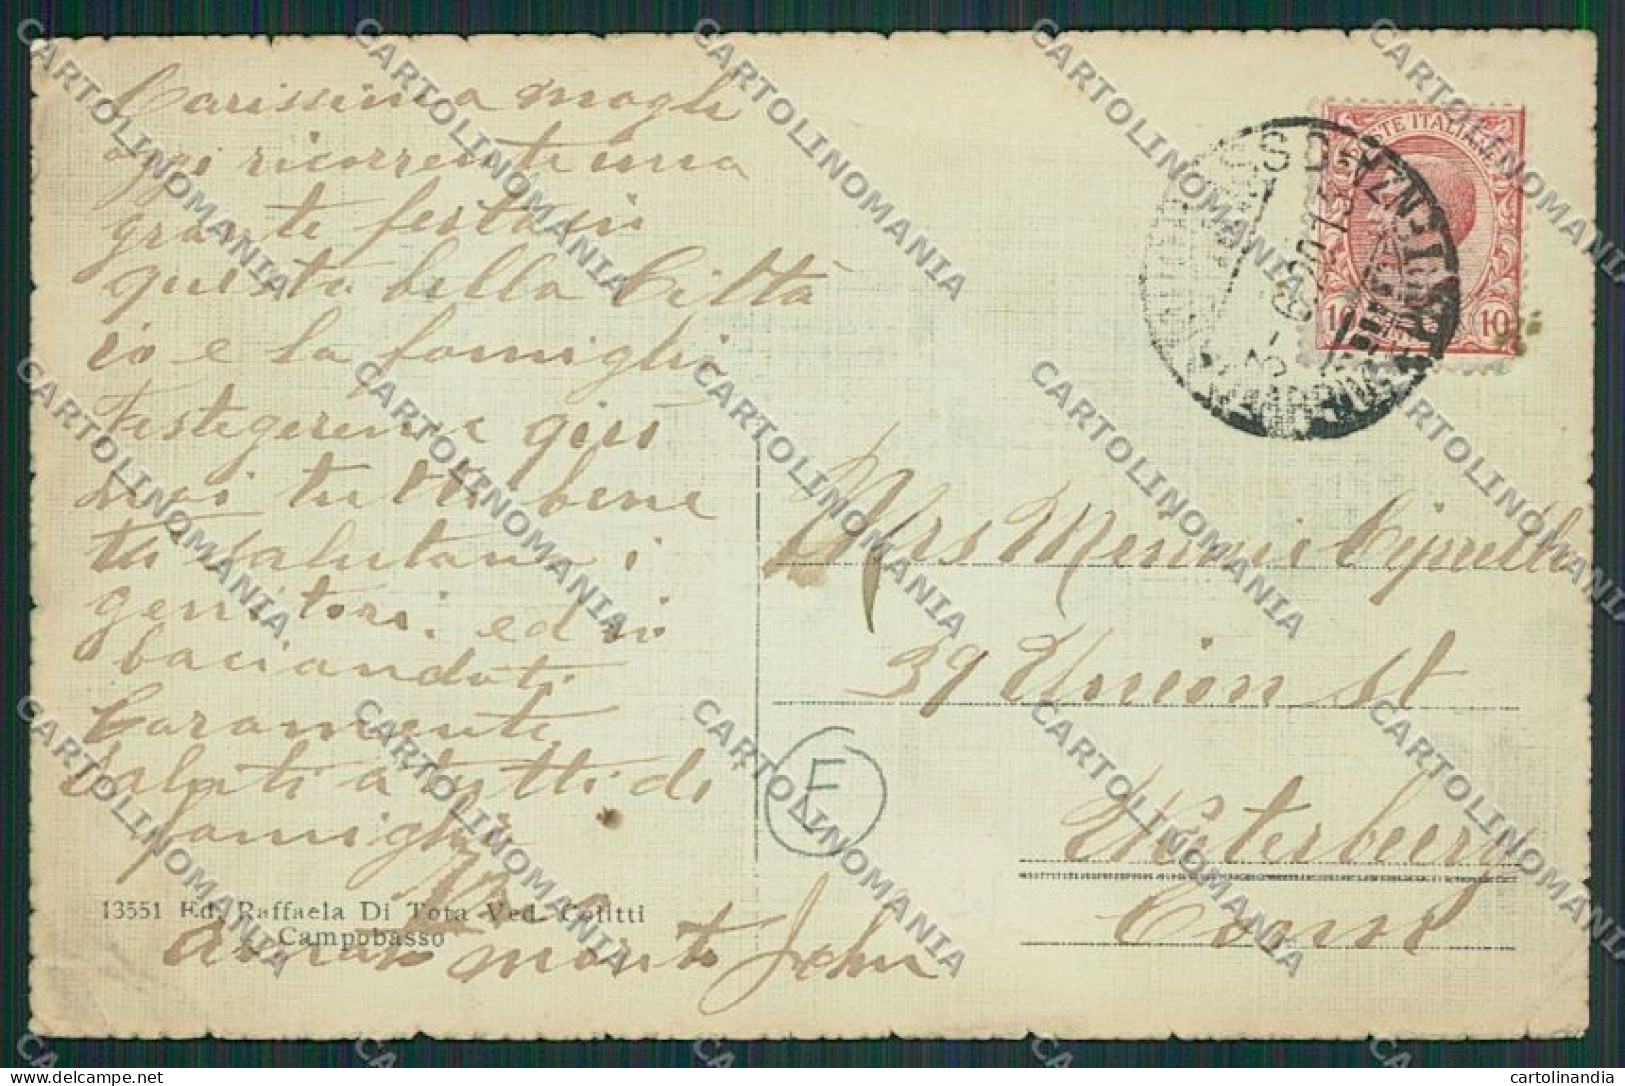 Carissima mogli
oggi ricorrente una
grante festa in
questa bella Città
io e la famiglia
Festigerema
noi tutti bene
ti salutano i
genitori. ed io
baciandoti
Caramente
Saluti a tutti di
famiglia
13551 Ed. Raffaela Di Tota Ved. Colitti
Campobasso
John
POSTE ITALIANE
10 10
Mrs Minnie
39 Union St
Waterbeery
Conn
E
CARTOLINOMANIA
cartolinandia
delcampe.net